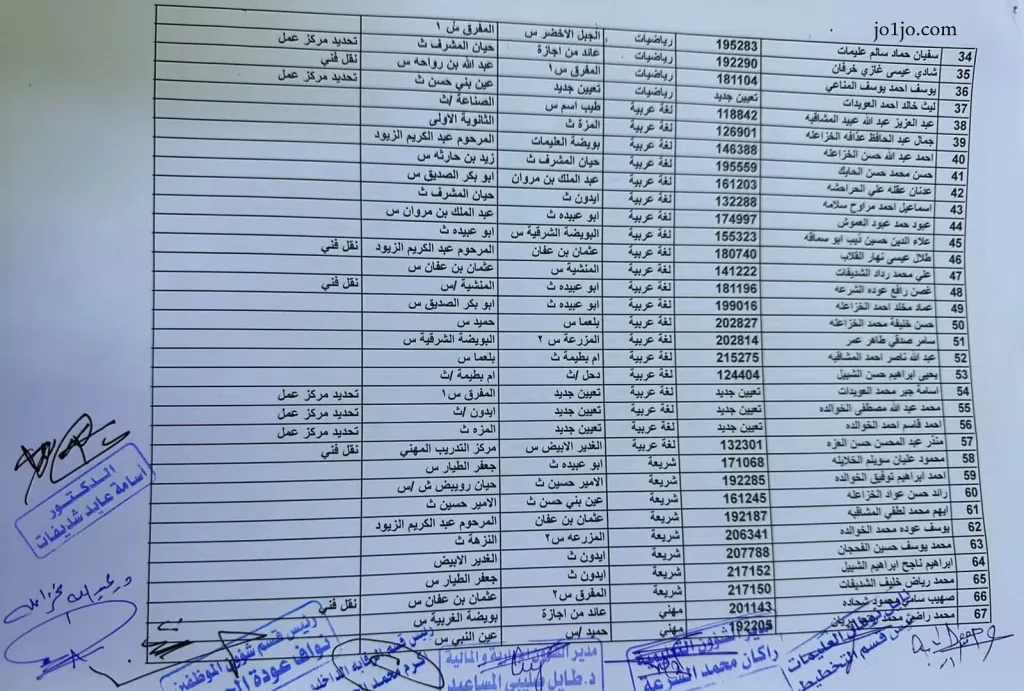 jo1jo.com
34 سفيان حماد سالم عليمات 195283 رياضيات الجبل الاخضر س المفرق ش ١
35 شادي عيسى غازي خرفان 192290 رياضيات عائد من اجازة حيان المشرف ث تحديد مركز عمل
36 يوسف احمد يوسف المناعي 181104 رياضيات المفرق س١ عبد الله بن رواحه س نقل فني
37 ليث خالد احمد العويدات تعيين جديد رياضيات تعيين جديد عين بني حسن ث تحديد مركز عمل
38 عبد العزيز عبد الله عبيد المشاقبه 118842 لغة عربية طيب اسم س الصناعة /ث
39 جمال عبد الحافظ عذافه الخزاعله 126901 لغة عربية المزة ث الثانوية الاولى
40 احمد عبد الله حسن الخزاعله 146388 لغة عربية بويضة العليمات المرحوم عبد الكريم الزيود
41 حسن محمد حسن الحايك 195559 لغة عربية حيان المشرف ث زيد بن حارثه س
42 عدنان عقله علي الحراحشه 161203 لغة عربية عبد الملك بن مروان ابو بكر الصديق س
43 اسماعيل احمد مراوح سلامه 132288 لغة عربية ايدون ث حيان المشرف ث
44 عبود حمد عبود العموش 174997 لغة عربية ابو عبيده ث عبد الملك بن مروان س
45 علاء الدين حسين ذيب ابو سماقه 155323 لغة عربية البويضة الشرقية س ابو عبيده ث
46 طلال عيسى نهار القلاب 180740 لغة عربية عثمان بن عفان المرحوم عبد الكريم الزيود نقل فني
47 علي محمد رداد الشديفات 141222 لغة عربية المنشية س عثمان بن عفان س
48 غصن رافع عوده الشرعه 181196 لغة عربية ابو عبيده ث المنشية /س نقل فني
49 عماد مخلد احمد الخزاعله 199016 لغة عربية ابو عبيده ث ابو بكر الصديق س
50 حسن خليفة محمد الخزاعله 202827 لغة عربية بلعما س حميد س
51 سامر صدقي طاهر عمر 202814 لغة عربية المزرعة س ٢ البويضة الشرقية س
52 عبد الله ناصر احمد المشاقبه 215275 لغة عربية ام بطيمة ث بلعما س
53 يحيى ابراهيم حسن الشبيل 124404 لغة عربية دحل /ث ام بطيمة /ث
54 اسامة جبر محمد العويدات تعيين جديد لغة عربية تعيين جديد المفرق س١ تحديد مركز عمل
55 محمد عبد الله مصطفى الخوالده تعيين جديد لغة عربية تعيين جديد ايدون /ث تحديد مركز عمل
56 احمد قاسم احمد الخوالده تعيين جديد لغة عربية تعيين جديد المزه ث تحديد مركز عمل
57 منذر عبد المحسن حسن العزه 132301 لغة عربية الغدير الابيض س مركز التدريب المهني نقل فني
58 محمود عليان سويلم الخلايله 171068 شريعة ابو عبيده ث جعفر الطيار س
59 احمد ابراهيم توفيق الخوالده 192285 شريعة الامير حسين ث حيان رويبض ش /س
60 رائد حسن عواد الخزاعله 161245 شريعة عين بني حسن ث الامير حسين ث
61 ايهم محمد لطفي المشاقبه 192187 شريعة عثمان بن عفان المرحوم عبد الكريم الزيود
62 يوسف عوده محمد الخوالده 206341 شريعة المزرعه س٢ النزهة ث
63 محمد يوسف حسين الفحجان 207788 شريعة ايدون ث الغدير الابيض
64 ابراهيم ناجح ابراهيم الشبيل 217152 شريعة ايدون ث جعفر الطيار س
65 محمد رياض خليف الشديفات 217150 شريعة المفرق س٢ عثمان بن عفان س
66 صهيب سامي محمود شحاده 201143 مهني عائد من اجازة بويضة الغربية س نقل فني
67 محمد راضي محمد 192205 مهني حميد /س عين النبي س
الدكتور
اسامة عايد شديفات
رئيس قسم شؤون الموظفين
نواف عودة
رئيس قسم الرقابه الداخلية
اكرم محمد
مدير الشؤون الادارية والمالية
د. طايل صليبي المساعيد
مدير الشؤون التعليمية
راكان محمد الشرعة
نواف العليمات
قسم التخطيط